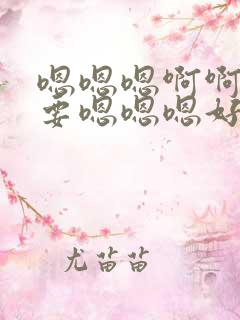 嗯嗯嗯啊啊
要嗯嗯嗯好
尤苗苗